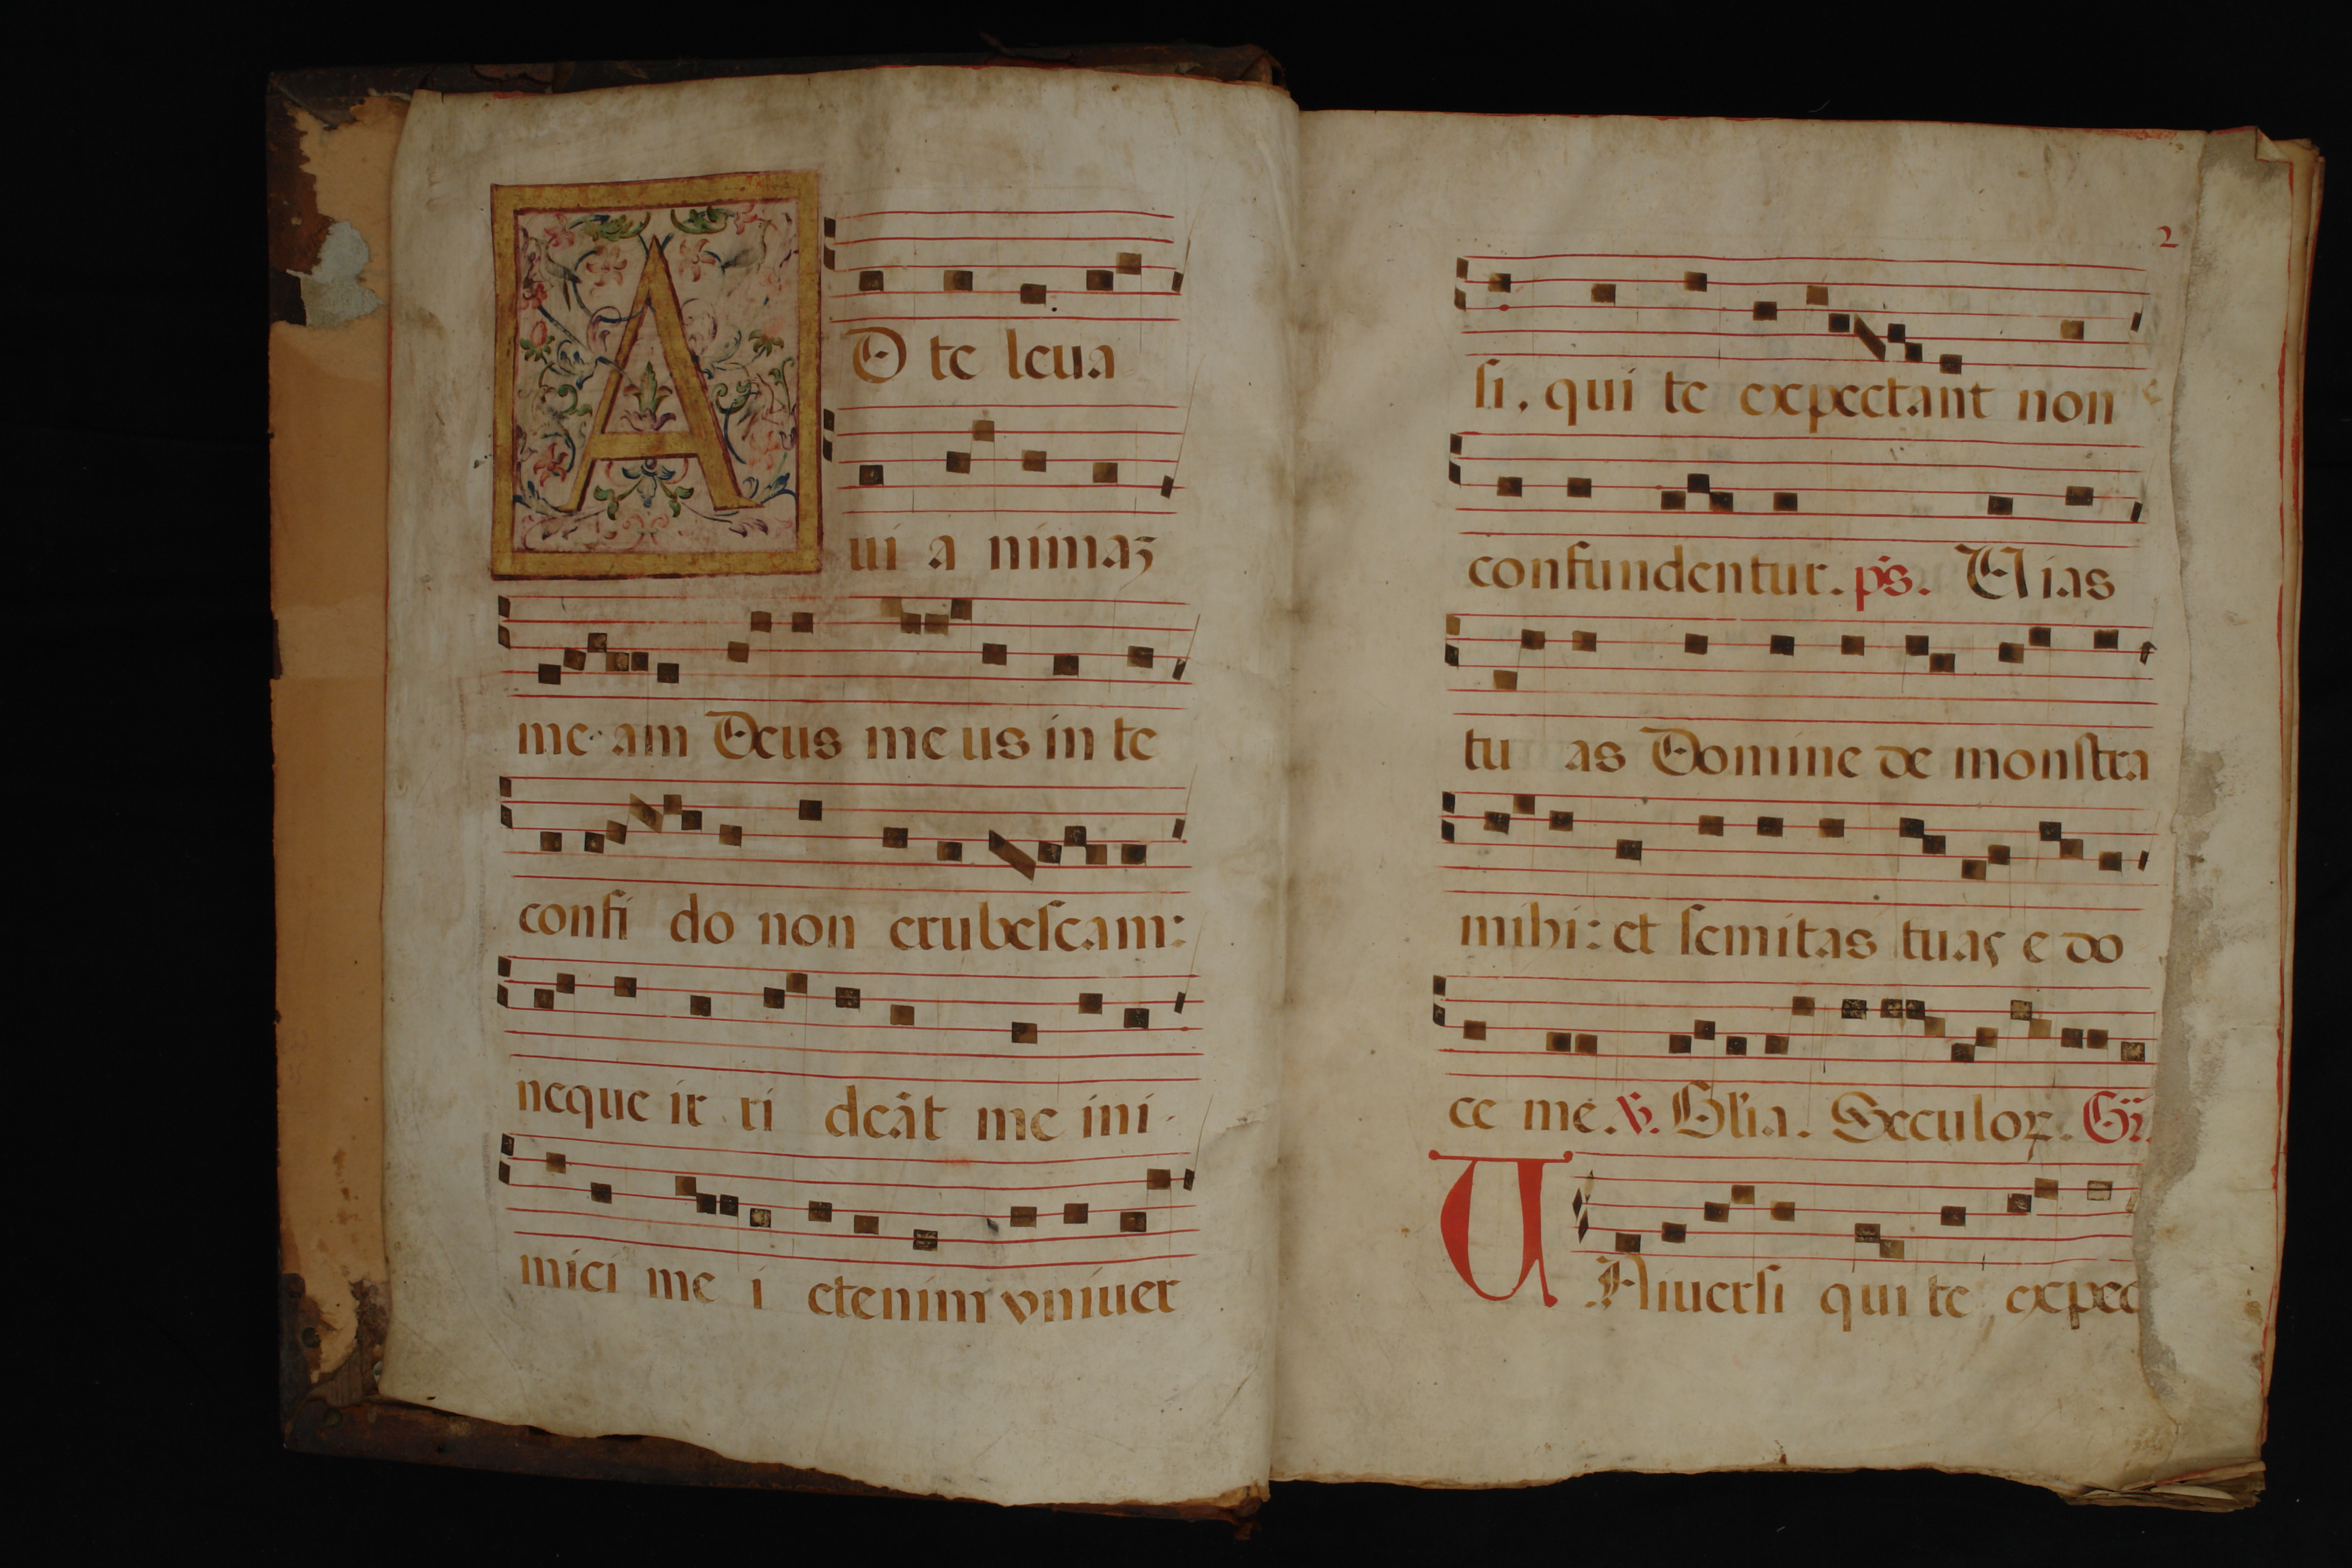 AD te leua
ui a nimaz
me am Deus me us in te
confi do non erubeſcam:
neque ir ri deāt me ini
mici me i etenim vniuer
2
ſi, qui te expectant non
confundentur. ps. Uias
tu as Domine de monſtra
mihi: et ſemitas tuas e do
ce me. V. Gl'ia. Seculoꝝ. Gr.
UNiuerſi qui te expec